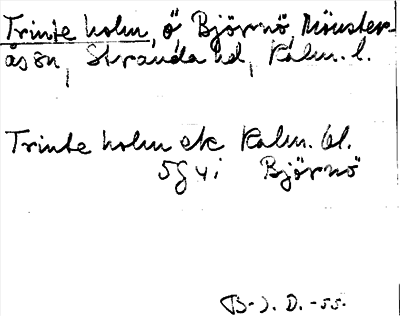 Trinte holm, ö, Björnö, Mönster-
ås sn, Stranda hd, Kalm. l.
Trinte holm ek Kalm. bl.
5G 4i Björnö
B-J. D. -55.